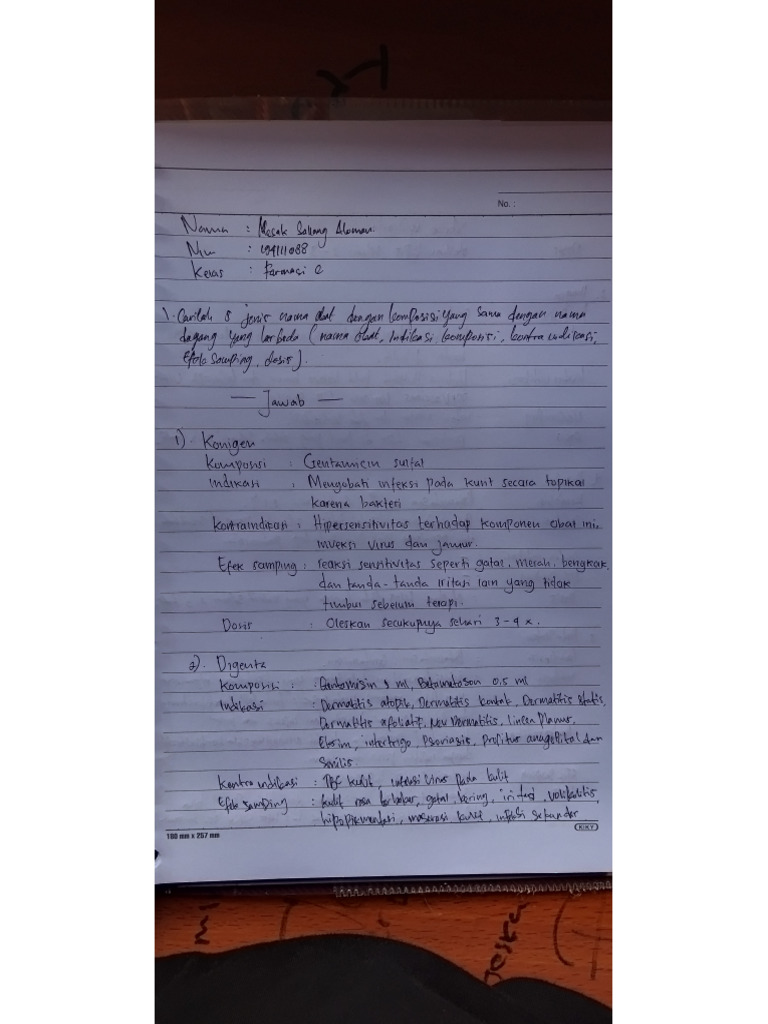 No. :
Nama :
Nim :
Kelas : Farmasi C
1. Carilah 8 jenis nama obat dengan komposisi yang sama dengan nama
dagang yang berbeda (nama obat, Indikasi, komposisi, kontra indikasi,
Efek Samping, dosis).
— Jawab —
1). Konigen
Komposisi : Gentamicin sulfat
Indikasi : Mengobati infeksi pada kulit secara topikal
karena bakteri
Kontraindikasi : Hipersensitivitas terhadap komponen obat ini,
inveksi virus dan jamur.
Efek samping : reaksi sensitivitas seperti gatal, merah, bengkak,
dan tanda-tanda iritasi lain yang tidak
timbul sebelum terapi.
Dosis : Oleskan secukupnya sehari 3-4 x.
2). Digenta
Komposisi : ml, 0,5 ml
Indikasi : Dermatitis atopik, Dermatitis kontak, Dermatitis statis,
Dermatitis Dermatitis, planus,
intertrigo, Psoriasis, dan
Kontra indikasi : TBC kulit, infeksi virus pada kulit
Efek samping : kulit rasa terbakar, gatal, kering, iritasi,
infeksi sekunder
190 mm x 257 mm
KIKY